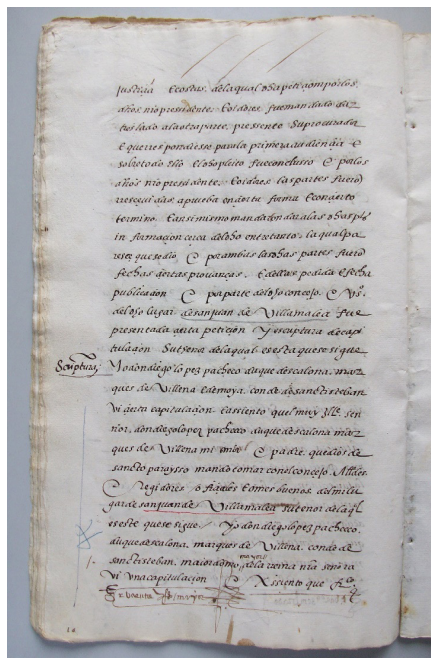 justiçia E costas. de la qual dha petiçion por los
dhos nro presidente. E oidores. fue mandado dar
traslado a la otra parte. presente su procurador
E que rrespondiesse para la primera audiençia E
sobre todo ello El dho pleito fue concluso E por los
dhos nro presidente. E oidores. las partes fuerō
rresçiuidas a prueba en çierta forma E con çierto
termino. E ansi mismo mandaron dar a las dhas ptes
in formaçion çerca de lo dho entretanto. la qual pa
resçe que se dio E por ambas las dhas partes fuerō
fechas çiertas provanças. E dellas pedida E fecha
publicaçion E por parte del dho conçejo. E vos
del dho lugar de san juan de Villamalea fue
presentada çierta petiçion Y escriptura de capi
tulaçion Su thenor de la qual es esta que se sigue
Scriptura
Yo don diego lopez pacheco duque descalona. mar
ques de Villena E de moya. conde de sanctisteban
vi çierta capitulaçion E assiento quel muy Ille. señ
ñor. don diego lopez pacheco duque descalona mar
ques de Villena mi señor E padre. que dios de
sancto parayso mando tomar con el conçejo. Alldes.
E rregidores E omes buenos. del mi lu
gar de san juan de Villamalea su tenor de la ql
es este que se sigue / Yo don diego lopez pacheco.
duque descalona. marques de Villena. conde de
sanctisteban. maiordomo mayor de la reina nra señora
vi vna capitulaçion E Assiento que